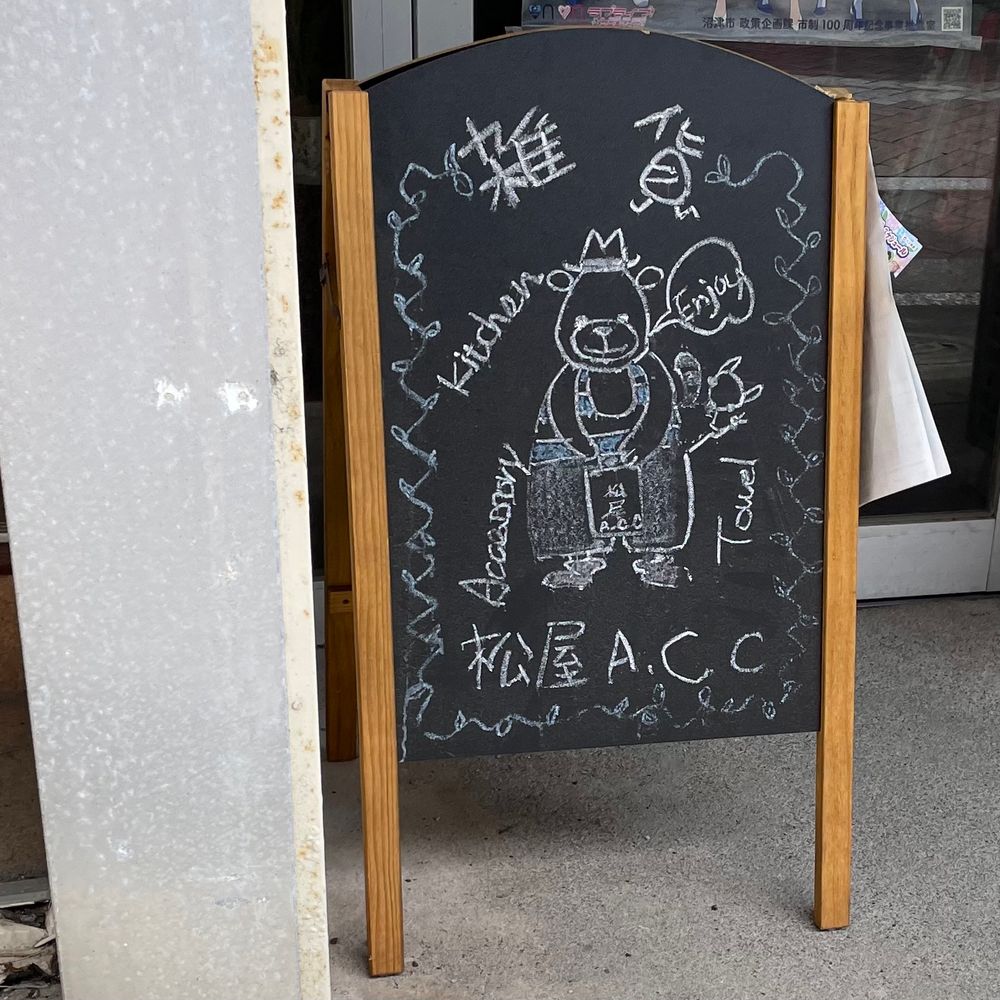 沼津市 政策企画課 市制100周年記念事業推進室
雑貨
Kitchen
Enjoy
Accessory
Towel
松屋
A.C.C
松屋 A.C.C